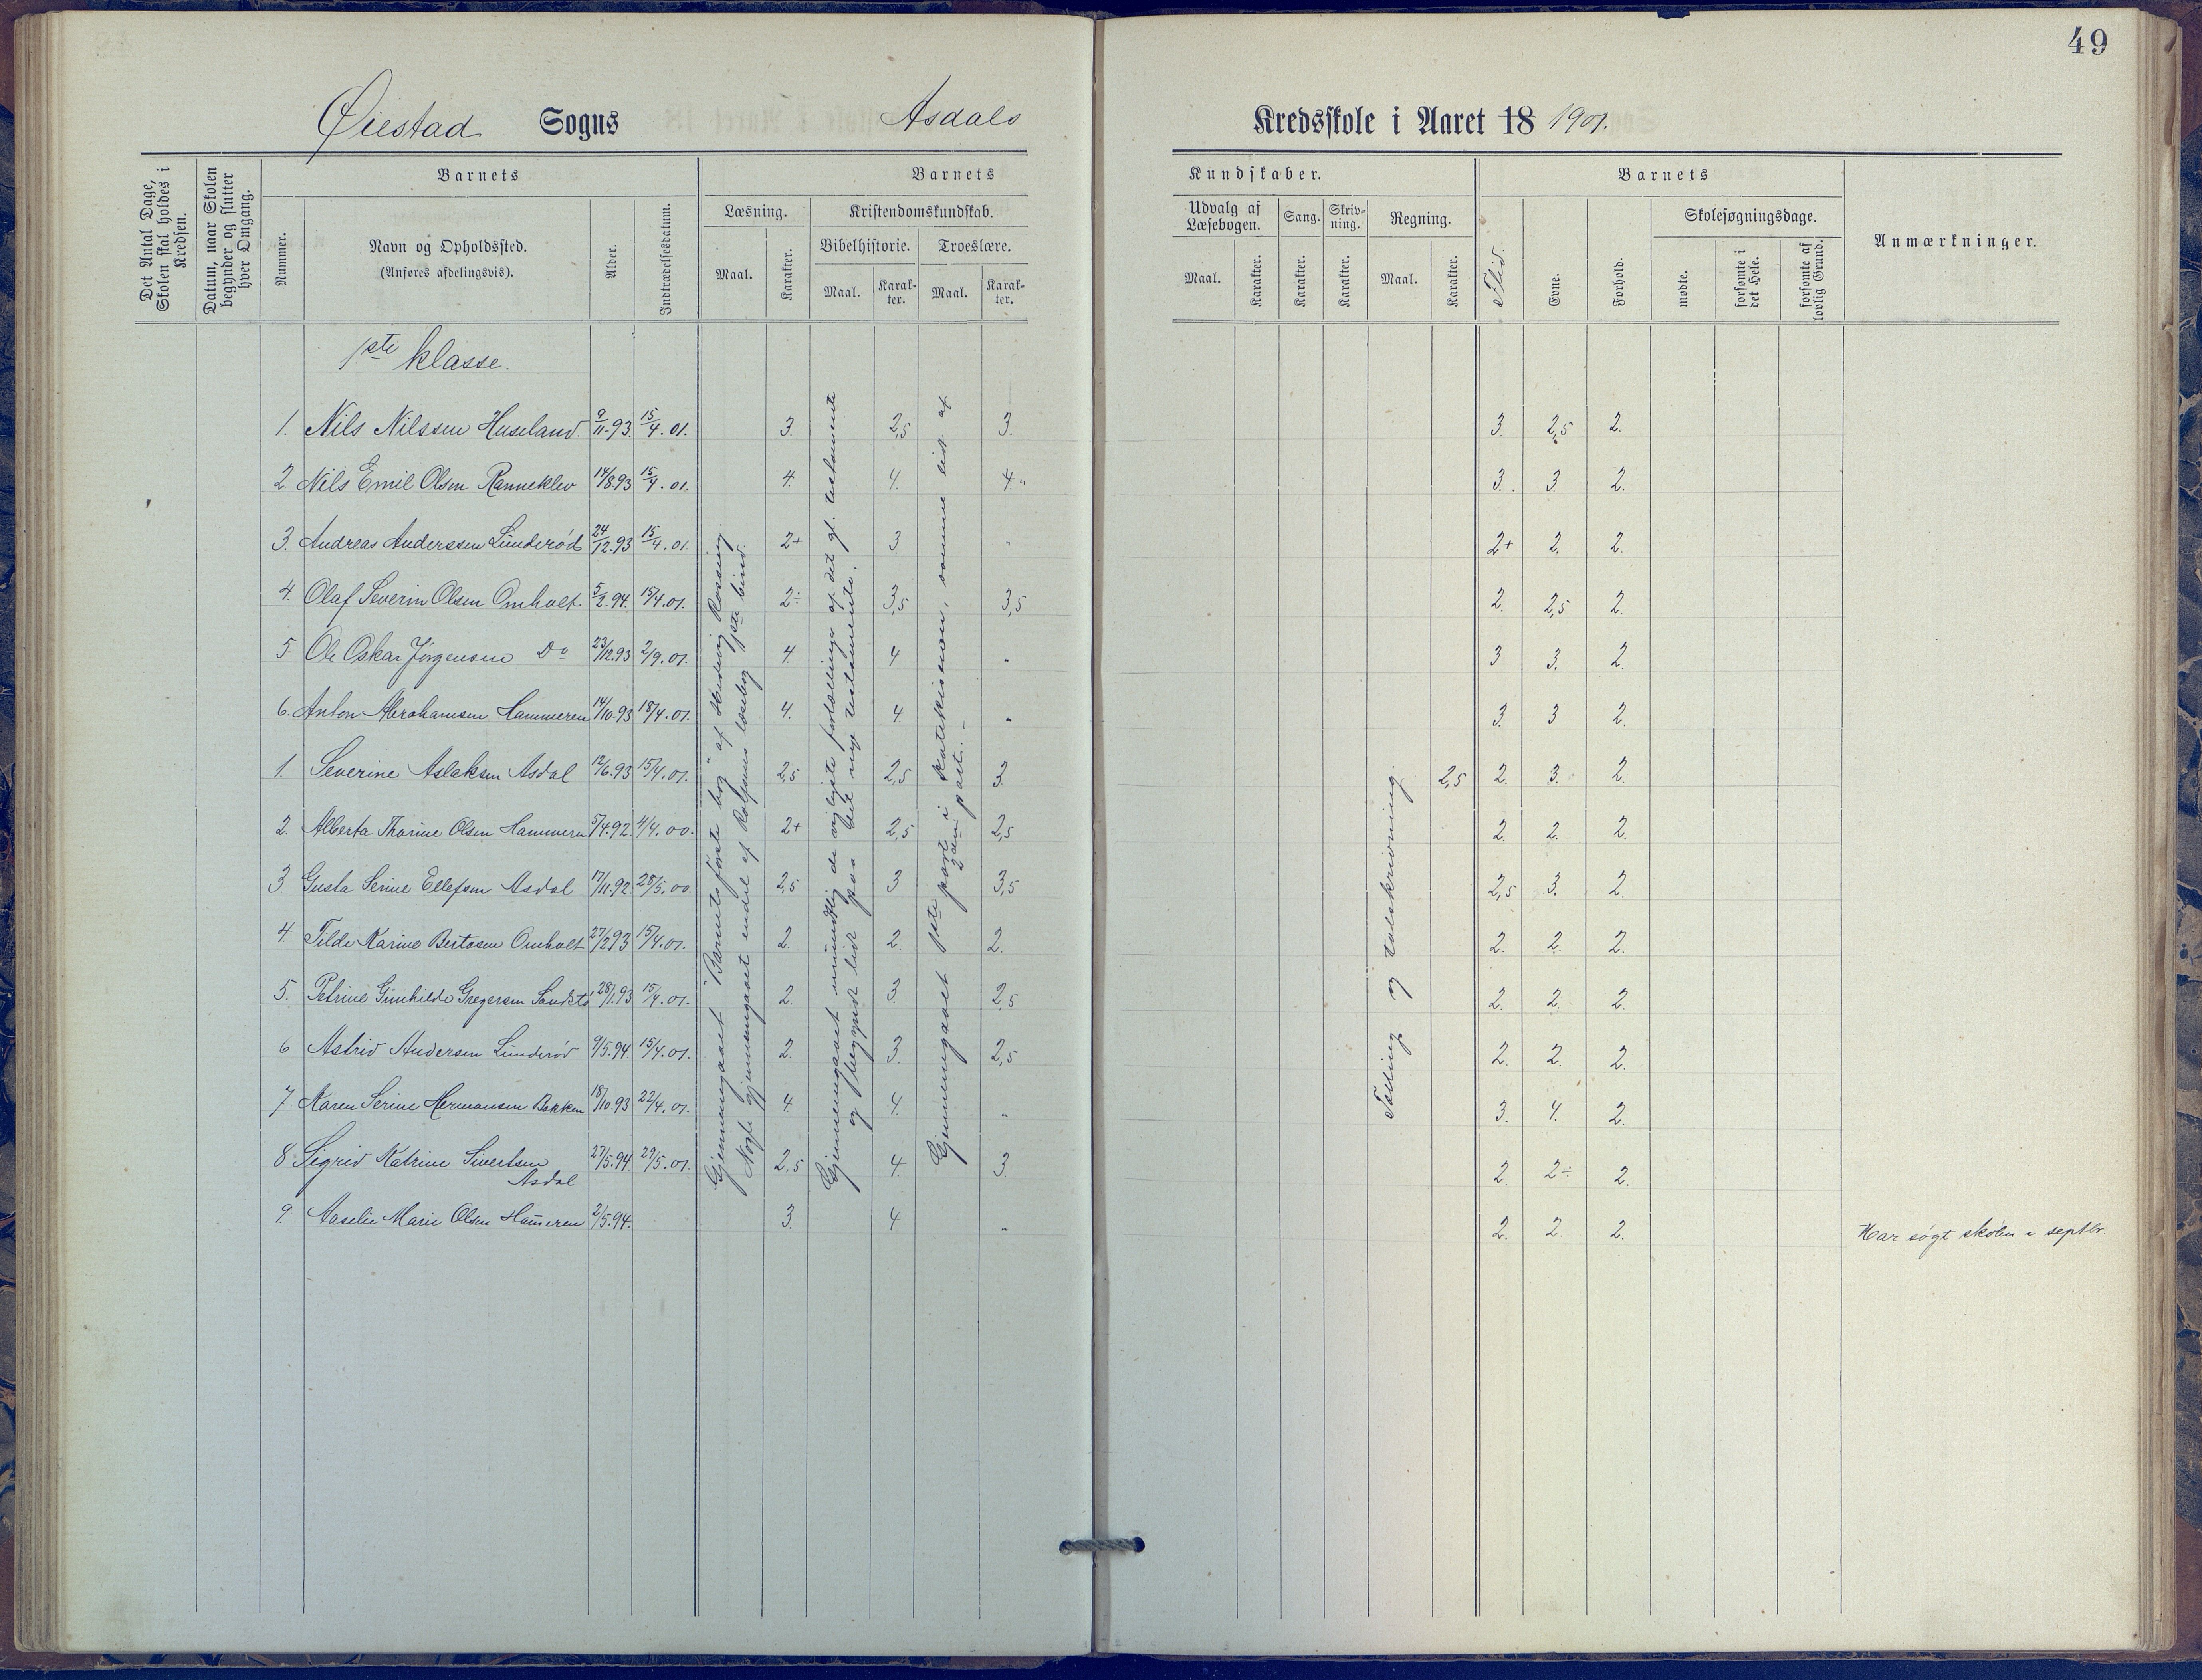 49
Øiestad Sogns Asdals Kredsskole i Aaret 18 1901.
Det Antal Dage, Skolen skal holdes i Kredsen.
Datum, naar Skolen begynder og slutter hver Omgang.
Barnets
Nummer.
Navn og Opholdssted.
(Anføres afdelingsvis).
Alder.
Indtrædelsesdatum.
Barnets Kundskaber.
Læsning.
Maal.
Karakter.
Kristendomskundskab.
Bibelhistorie.
Maal.
Karakter.
Troeslære.
Maal.
Karakter.
Udvalg af Læsebogen.
Maal.
Karakter.
Sang.
Karakter.
Skrivning.
Karakter.
Regning.
Maal.
Karakter.
Barnets
Flid.
Evne.
Forhold.
Skolesøgningsdage.
mødte.
forsømte i det Hele.
forsømte af lovlig Grund.
Anmærkninger.
1ste klasse.
1. Nils Nilssen Huseland. 9/11-93. 15/4.01. 3. 2,5 3. 3. 2,5 2.
2 Nils Emil Olsen Ranneklev 14/8.93 15/4.01. 4. 4. 4." 3. 3. 2.
3. Andreas Anderssen Lunderød 24/12.93 15/4.01. 2+ 3. " 2+ 2. 2.
4. Olaf Severin Olsen Omholt 5/2.94. 15/4.01. 2÷ 3,5 3,5 2. 2,5 2.
5. Ole Oskar Jørgensen Do 23/12.93 2/9.01. 4. 4 " 3 3. 2.
6. Anton Abrahamsen Hammeren 14/10.93 18/4.01. 4. 4. " 3. 3 2.
1. Severine Aslaksen Asdal 12/6.93 15/4.01. 2,5 2,5 3 2,5 2. 3. 2.
2. Alberta Thorine Olsen Hammeren 5/4.92. 4/4.00. 2+ 2,5 2,5 2. 2. 2.
3. Gusta Serine Ellefsen Asdal 17/11.92. 28/5.00. 2,5 3 3,5 2,5 3. 2.
4. Tilda Karine Bertosen Omholt 27/2.93 15/4.01. 2. 2. 2. 2. 2. 2.
5. Petrine Gunhilde Gregersen Sandsto 28/1.93 15/4.01. 2. 3. 2,5 2. 2. 2.
6 Astrid Andersen Lunderød 9/5.94 15/4.01. 2. 3. 2,5 2. 2. 2.
7 Karen Serine Hermansen Bakken 18/10.93 22/4.01. 4. 4. " 3. 4. 2.
8 Sigrid Katrine Sivertsen Asdal 27/5.94 29/5.01. 2,5 4. 3. 2. 2÷ 2.
9. Aaselie Marie Olsen Hammeren 2/5.94. 3. 4 " 2. 2. 2. Har søgt skolen i septbr.
Gjennemgaaet "Barnets første bog" af Rossing
Nogle gjennemgaaet endel af Rolfsens læsebog 1ste bind.
Gjennemgaaet mundtlig de vigtigste fortællinger af det gl. testamente
og begyndt lidt paa det nye testamente.
Gjennemgaaet 1ste part i katekismen, somme lidt af
2den part. –
Tælling og talskrivning.